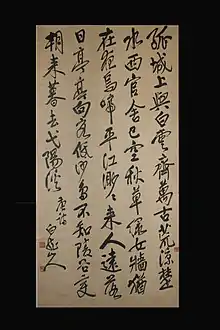 孤城上與白雲齊萬古荒涼楚
水西官舍已空秋草綠女牆猶
在夜烏啼平江渺渺來人遠落
日亭亭向客低沙鳥不知陵谷變
朝來暮去弋陽溪 唐詩
白 山人